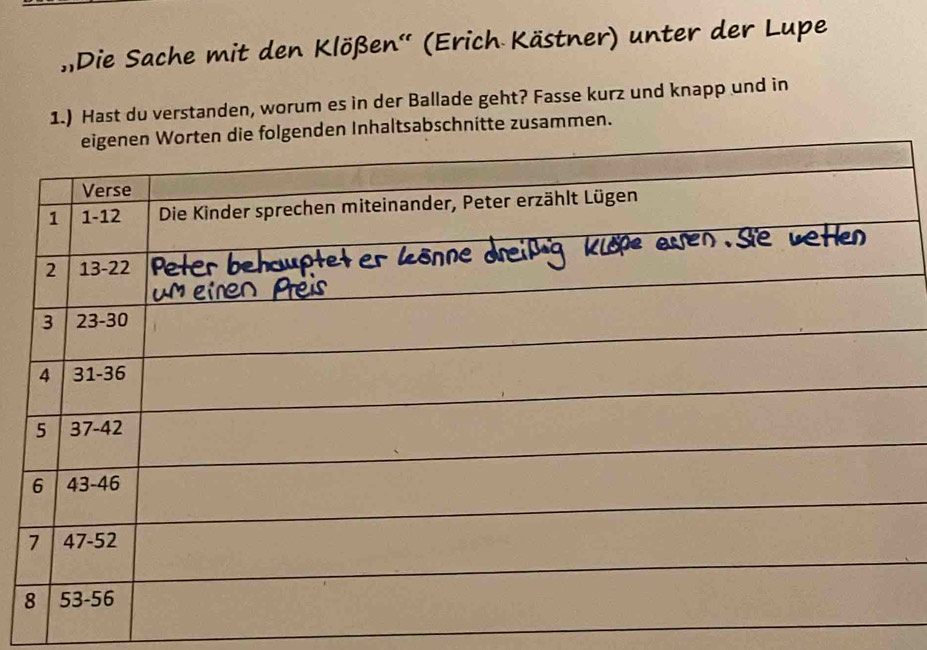 „Die Sache mit den Klößen“ (Erich Kästner) unter der Lupe
1.) Hast du verstanden, worum es in der Ballade geht? Fasse kurz und knapp und in
eigenen Worten die folgenden Inhaltsabschnitte zusammen.
Verse
1 1-12 Die Kinder sprechen miteinander, Peter erzählt Lügen
2 13-22 Peter behauptet er könne dreißig Klöße essen. Sie wetten
um einen Preis
3 23-30
4 31-36
5 37-42
6 43-46
7 47-52
8 53-56